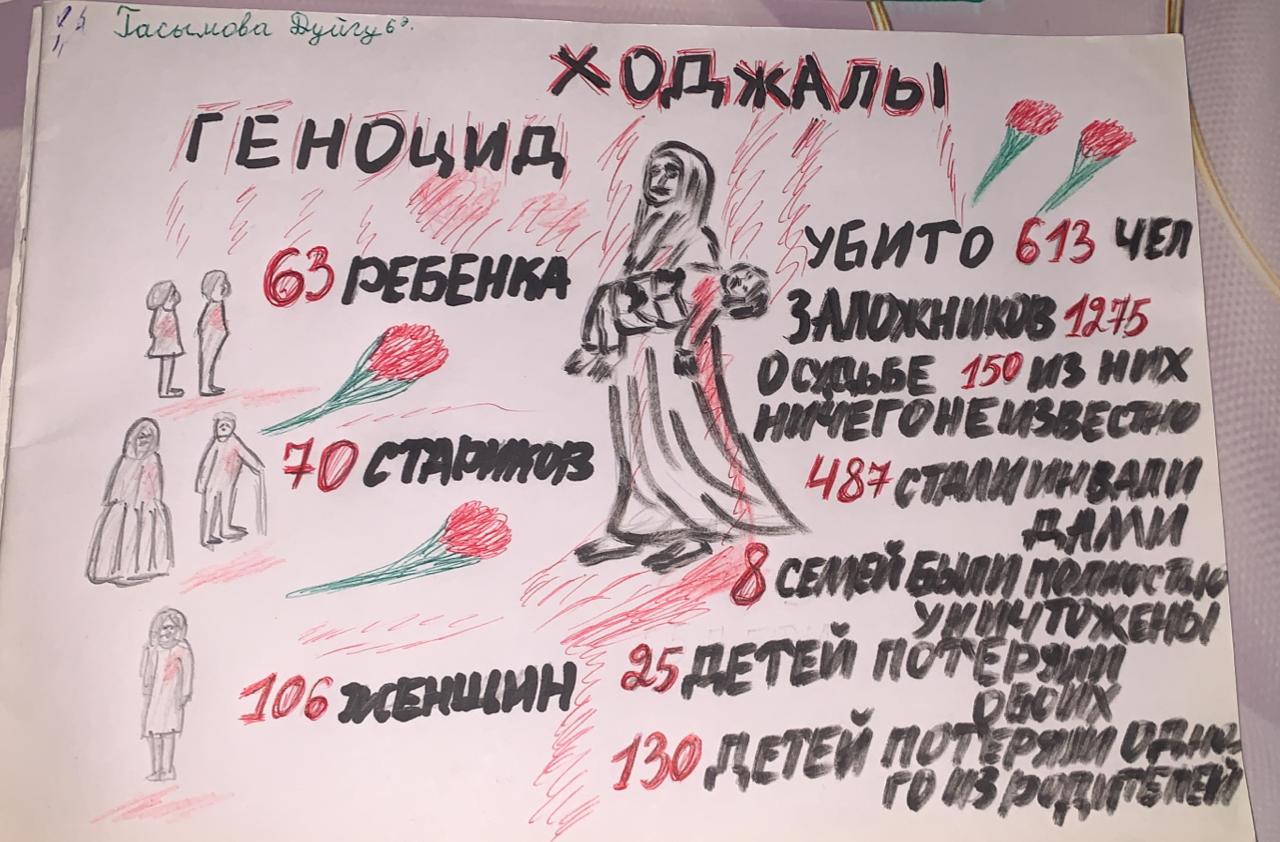 Гасымова Дуйгу 6э.
ХОДЖАЛЫ
ГЕНОЦИД
63 РЕБЕНКА
70 СТАРИКОВ
106 ЖЕНЩИН
УБИТО 613 ЧЕЛ
ЗАЛОЖНИКОВ 1275
О СУДЬБЕ 150 ИЗ НИХ
НИЧЕГО НЕ ИЗВЕСТНО
487 СТАЛИ ИНВАЛИ
ДАМИ
8 СЕМЕЙ БЫЛИ ПОЛНОСТЬЮ
УНИЧТОЖЕНЫ
25 ДЕТЕЙ ПОТЕРЯЛИ
ОБОИХ
130 ДЕТЕЙ ПОТЕРЯЛИ ОДНО
ГО ИЗ РОДИТЕЛЕЙ